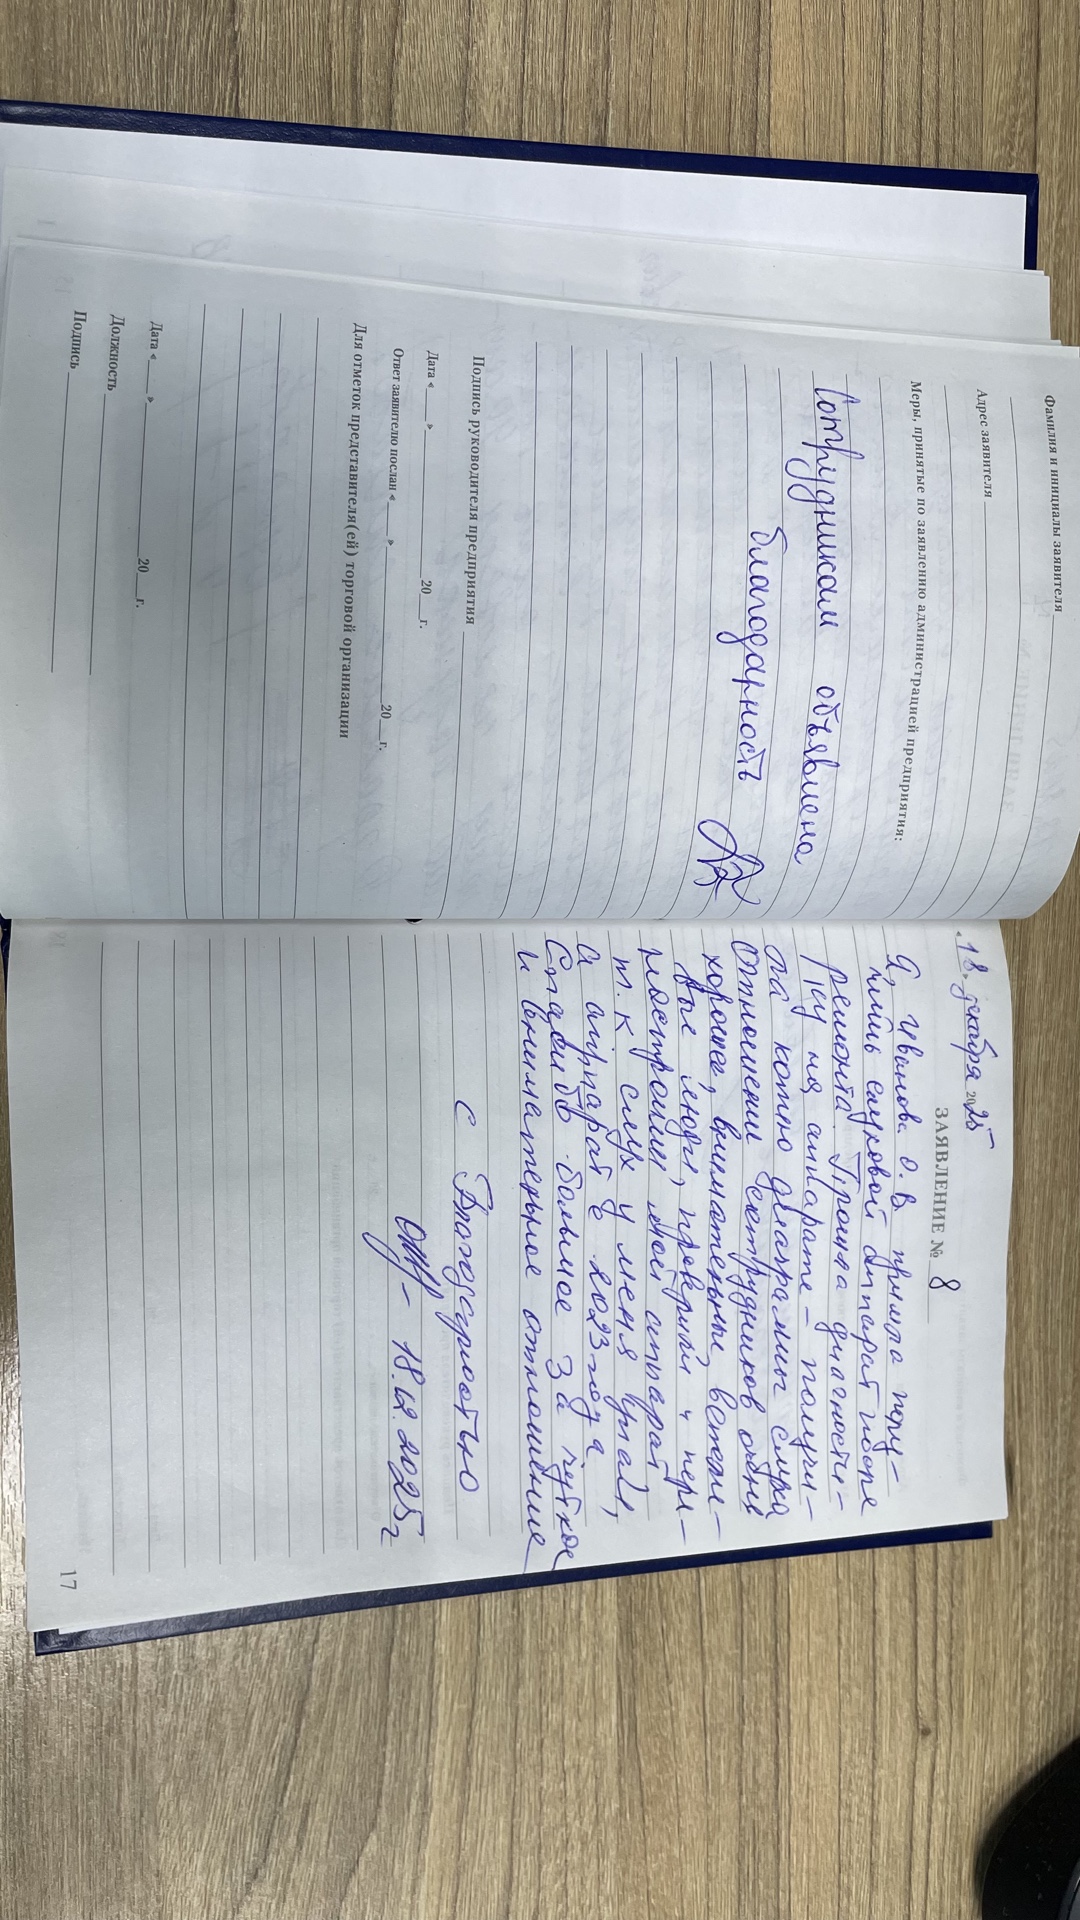 Фамилия и инициалы заявителя
Адрес заявителя
Меры, принятые по заявлению администрацией предприятия:
Сотрудникам объявлена
благодарность
Подпись руководителя предприятия
Дата «____» ____ 20__г.
Ответ заявителю послан «____» ____ 20__г.
Для отметок представителя(ей) торговой организации
Дата «____» ____ 20__г.
Должность
Подпись
18. декабря 2025
ЗАЯВЛЕНИЕ № 8
Я, Иванова О.В пришла полу-
чить слуховой аппарат после
ремонта. Прошла диагности-
ку на аппарате - получи-
ла копию диаграммы слуха
Отношении сотрудников очень
хорошее, внимательные, вежли-
вые люди, проверили и пере-
настроили мой аппарат
т.к слух у меня упал,
а аппарат с 2023 года
Спасибо большое за чуткое
и внимательное отношение
С Благодарностью
18.12.2025г
17